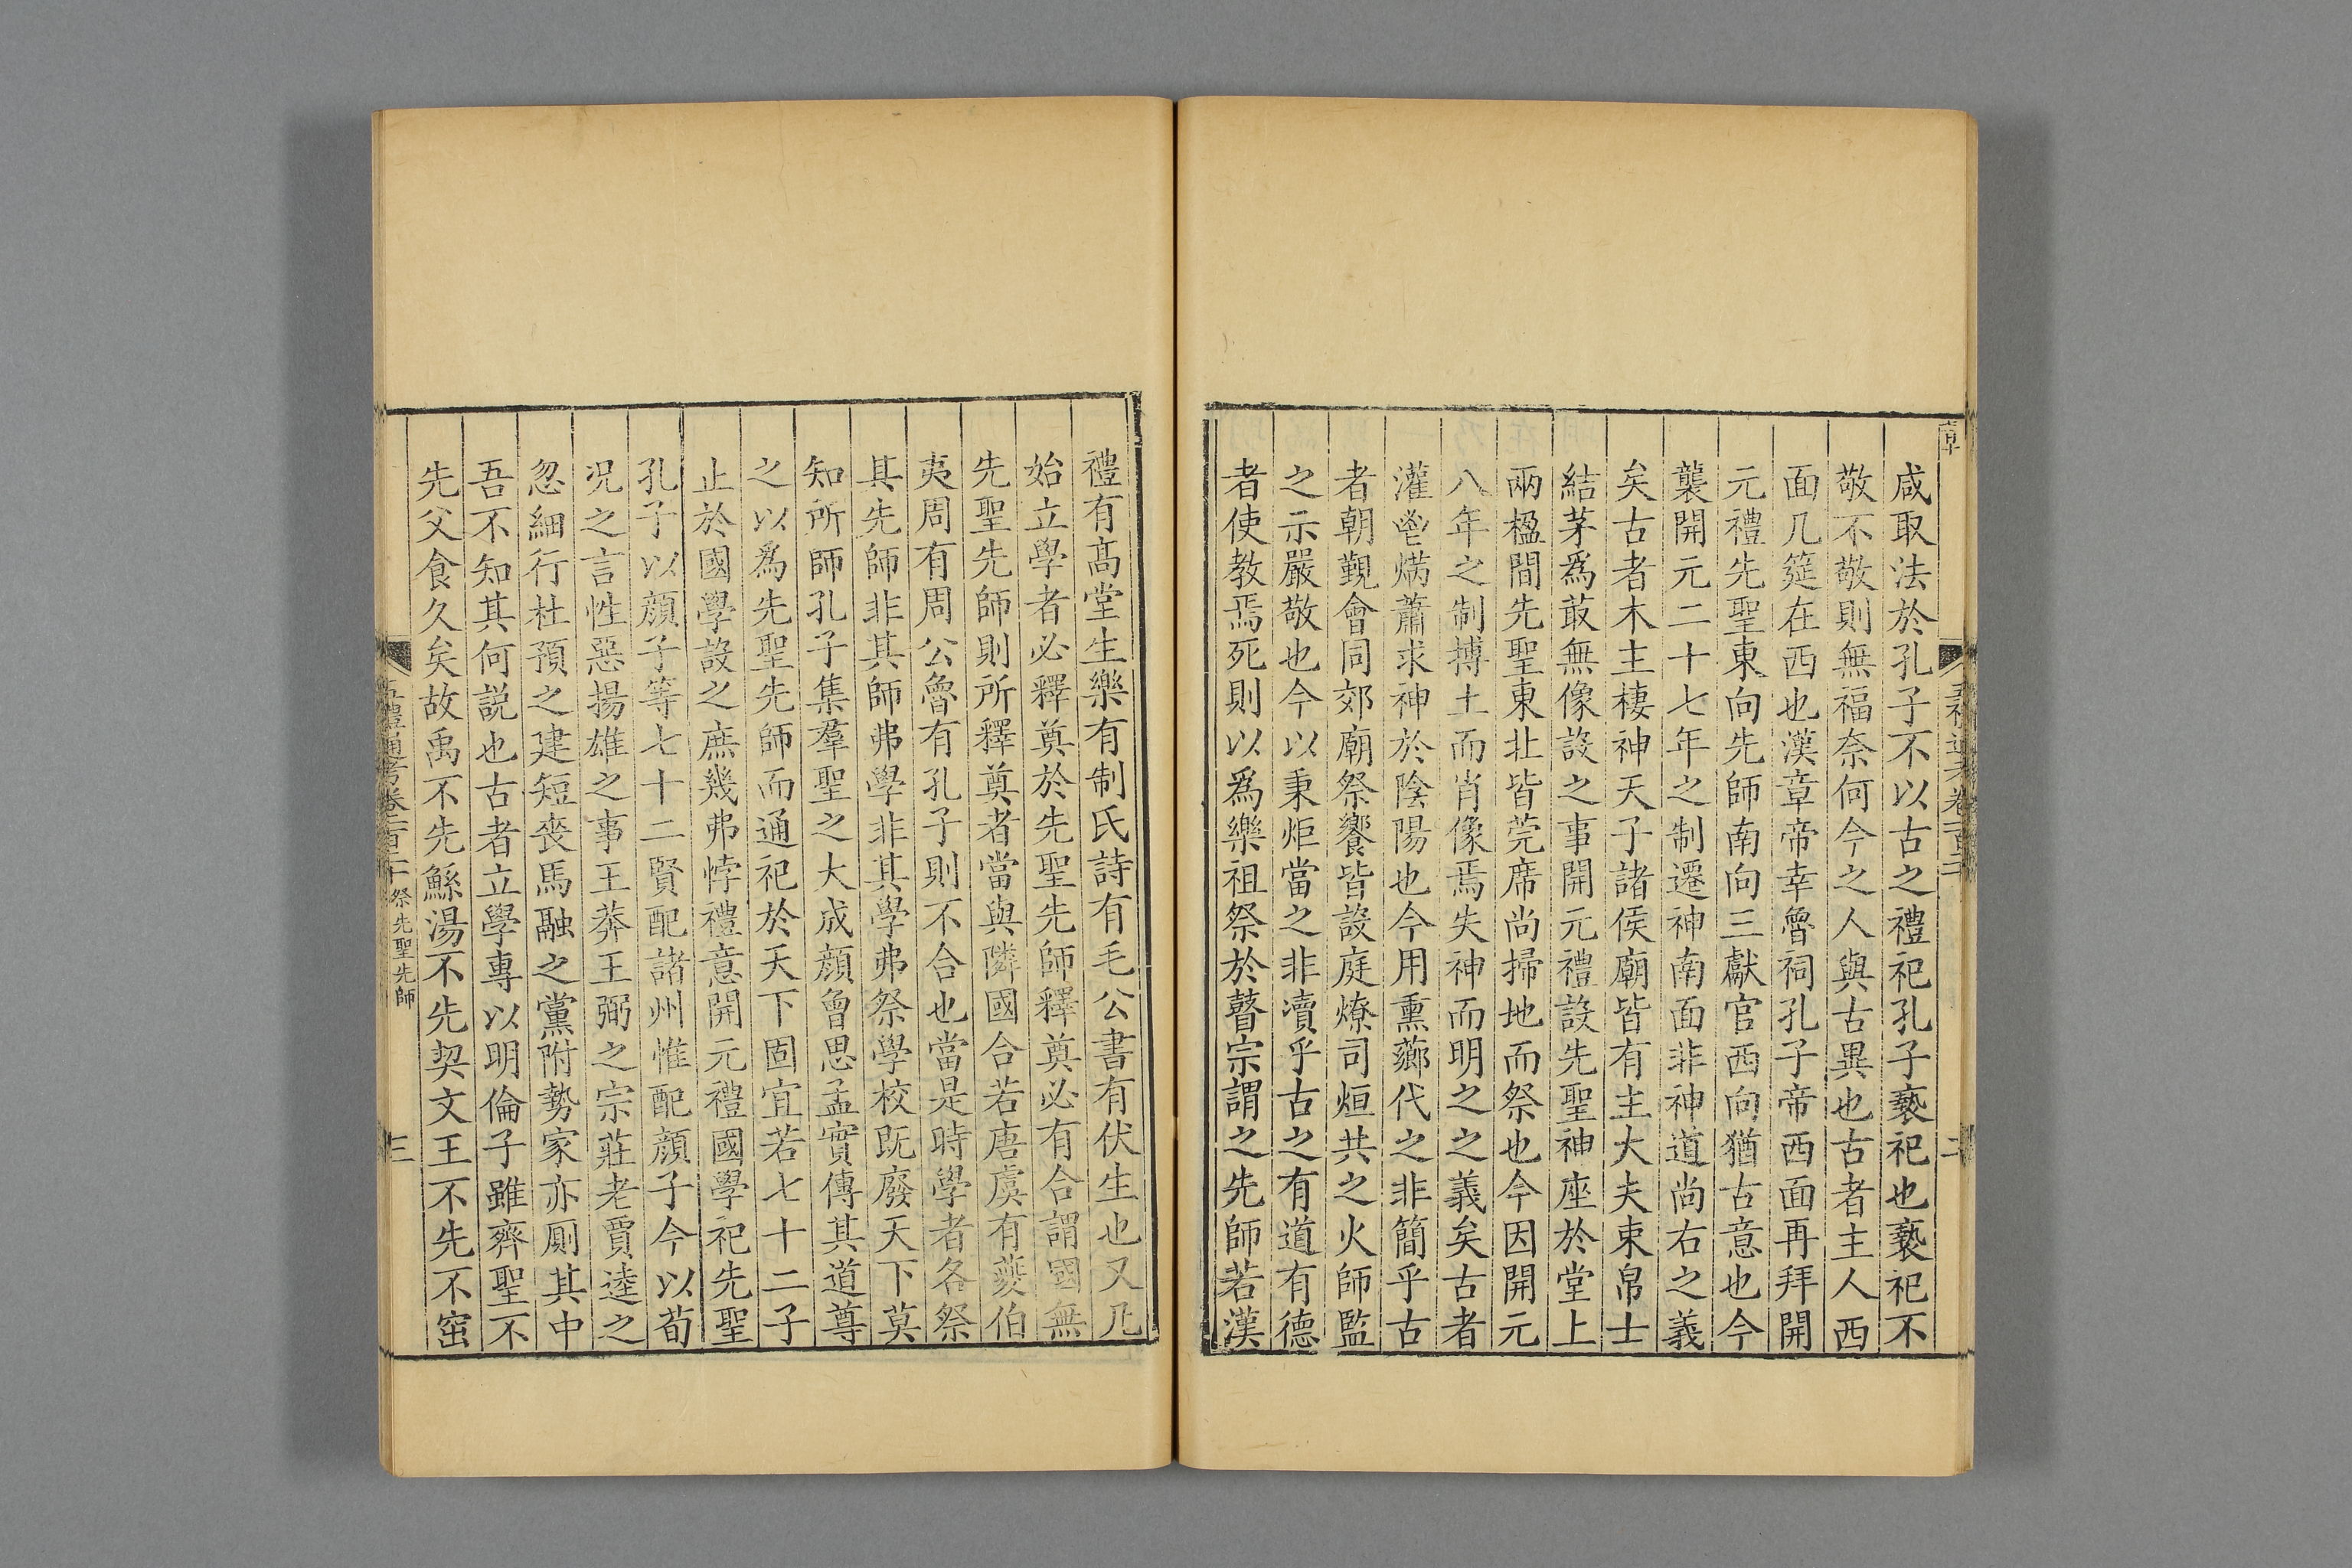 咸取法於孔子不以古之禮祀孔子褻祀也褻祀不
敬不敬則無福奈何今之人與古異也古者主人西
面几筵在西也漢章帝幸魯祠孔子帝西面再拜開
元禮先聖東向先師南向三獻官西向猶古意也今
襲開元二十七年之制遷神南面非神道尚右之義
矣古者木主棲神天子諸侯廟皆有主大夫束帛士
結茅為菆無像設之事開元禮設先聖神座於堂上
兩楹間先聖東北皆莞席尚掃地而祭也今因開元
八年之制搏土而肖像焉失神而明之之義矣古者
灌鬯焫蕭求神於陰陽也今用熏薌代之非簡乎古
者朝覲會同郊廟祭饗皆設庭燎司烜共之火師監
之示嚴敬也今以秉炬當之非瀆乎古之有道有德
者使教焉死則以為樂祖祭於瞽宗謂之先師若漢
禮有髙堂生樂有制氏詩有毛公書有伏生也又凡
始立學者必釋奠於先聖先師釋奠必有合謂國無
先聖先師則所釋奠者當與隣國合若唐虞有夔伯
夷周有周公魯有孔子則不合也當是時學者各祭
其先師非其師弗學非其學弗祭學校既廢天下莫
知所師孔子集羣聖之大成顔曾思孟實傳其道尊
之以爲先聖先師而通祀於天下固宜若七十二子
止於國學設之庶幾弗悖禮意開元禮國學祀先聖
孔子以顔子等七十二賢配諸州惟配顔子今以荀
况之言性惡揚雄之事王莽王弼之宗莊老賈逵之
忽細行杜預之建短喪馬融之黨附勢家亦厠其中
吾不知其何説也古者立學專以明倫子雖齊聖不
先父食久矣故禹不先鯀湯不先契文王不先不窋
五禮通考卷一百二十 祭先聖先師
三